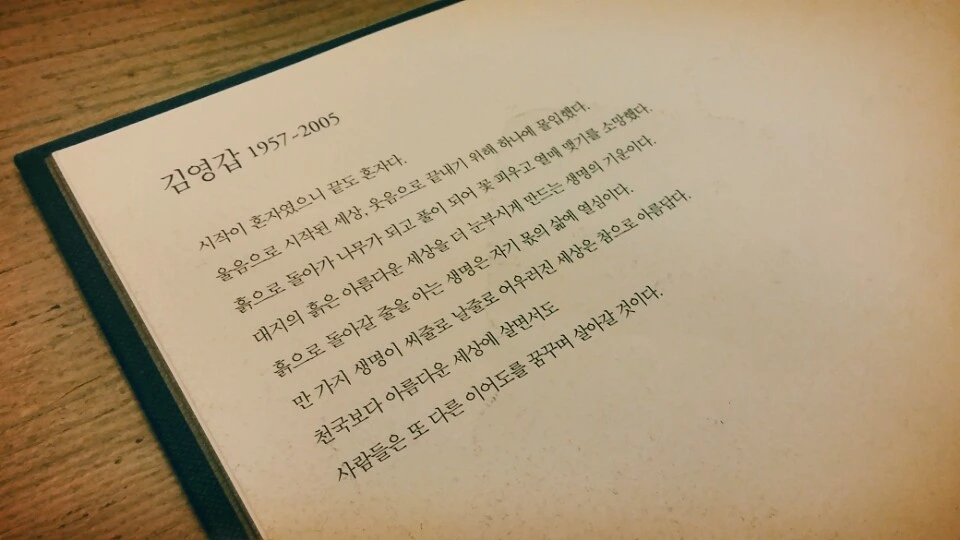 김영갑 1957~2005
시작이 혼자였으니 끝도 혼자다.
울음으로 시작된 세상, 웃음으로 끝내기 위해 하나에 몰입했다.
흙으로 돌아가 나무가 되고 풀이 되어 꽃 피우고 열매 맺기를 소망했다.
대지의 흙은 아름다운 세상을 더 눈부시게 만드는 생명의 기운이다.
흙으로 돌아갈 줄을 아는 생명은 자기 몫의 삶에 열심이다.
만 가지 생명이 씨줄로 날줄로 어우러진 세상은 참으로 아름답다.
천국보다 아름다운 세상에 살면서도
사람들은 또 다른 이어도를 꿈꾸며 살아갈 것이다.